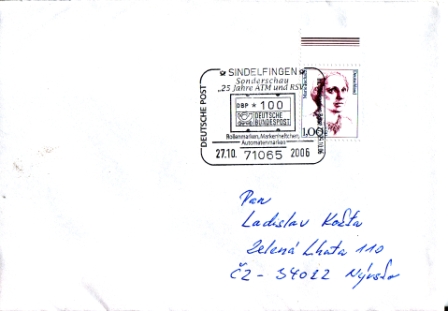 SINDELFINGEN
Sonderschau
„25 Jahre ATM und RSV“
DBP * 100
DEUTSCHE
BUNDESPOST
Rollenmarken, Markenheftchen,
Automatenmarken
27.10. 71065 2006
DEUTSCHE POST
1.00
Deutschland
Pan
Ladislav
Zelená Lhota 110
ČZ - 34022 Nýrsko